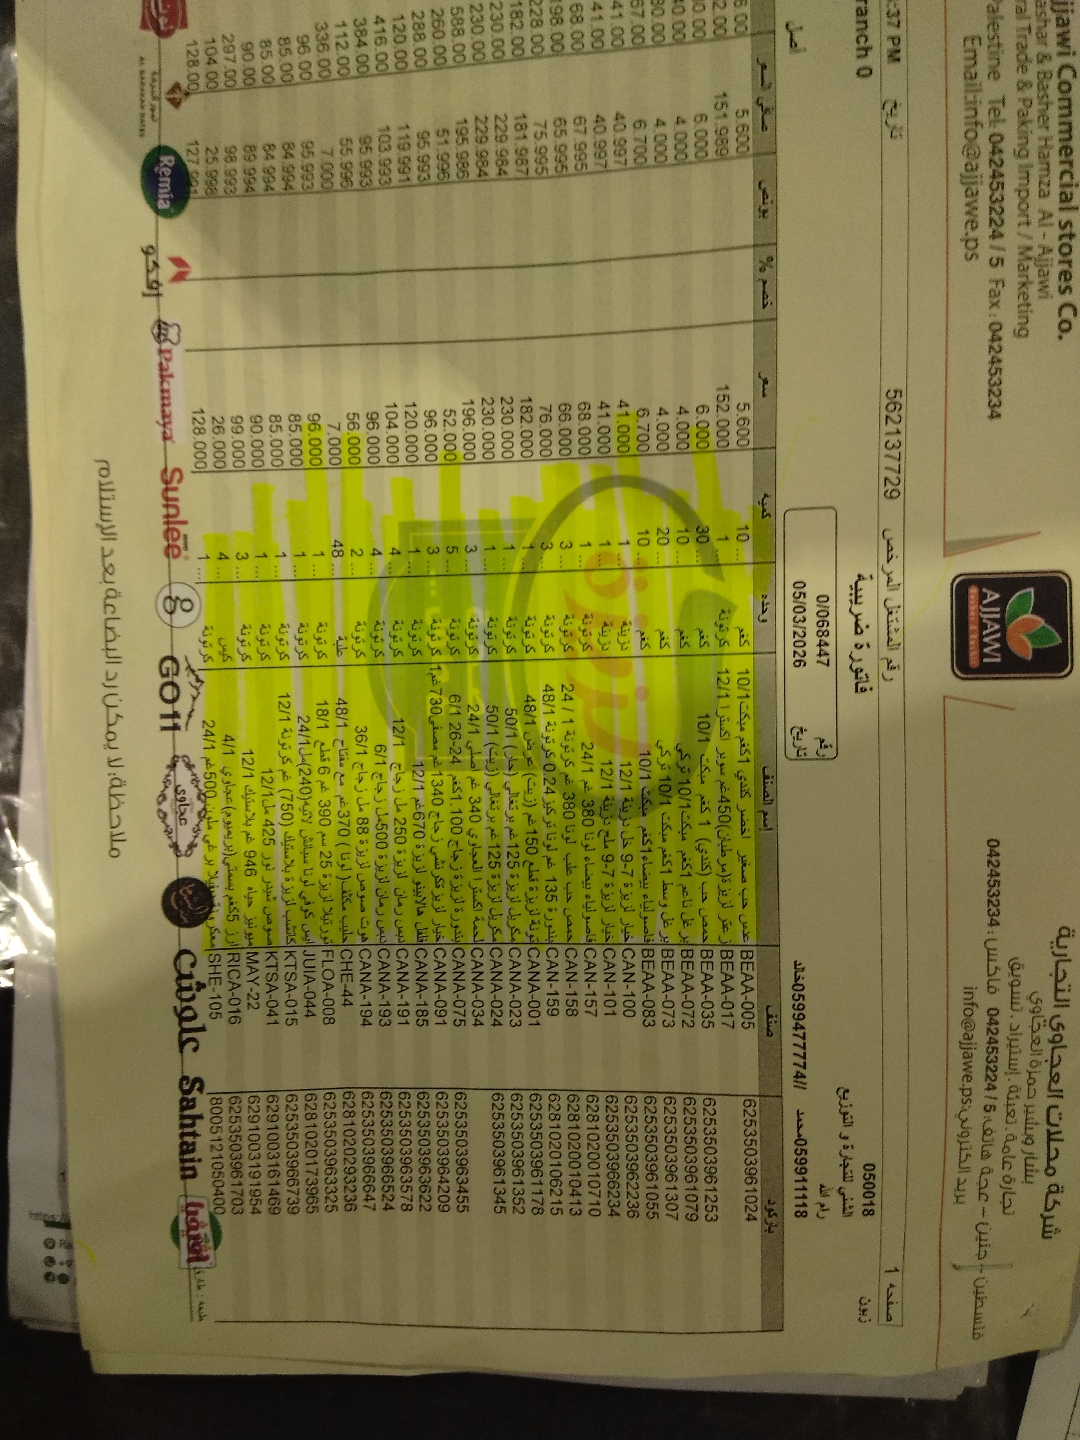 شركة محلات العجاوي التجارية
بشار وبشير حمزة العجاوي
تجارة عامة . تعبئة . إستيراد . تسويق
فلسطين - جنين - عجة هاتف : 042453224 / 5 فاكس : 042453234
بريد الكتروني: info@ajjawe.ps
AJJAWI
Bashar & Basheer
jjawi Commercial stores Co.
ashar & Basher Hamza Al - Ajjawi
ral Trade & Paking Import / Marketing
Palestine Tel: 042453224 / 5 Fax : 042453234
Email:info@ajjawe.ps
صفحة 1 رقم المشتغل المرخص 562137729 تاريخ :37 PM
زبون 050018 فاتورة ضريبية ranch 0
الشني للتجارة و التوزيع
رام الله
رقم 0/068447
تاريخ 05/03/2026
محمد059911118 //0599477774خالد
أصل
باركود صنف إسم الصنف وحده كميه سعر خصم % بونص صافي السعر
6253503961024 BEAA-005 عدس حب صغير اخضر كندي 1كغم ميكت 10/1 كغم 10 5.600 5.600 6.00
BEAA-017 كرتونة 1 152.000 151.989 2.00
6253503961253 BEAA-035 حمص حب (كندي) 1 كغم ميكت 10/1 كغم 30 6.000 6.000 0.00
6253503961079 BEAA-072 برغل ناعم 1كغم ميكت 10/1 تركي كغم 10 4.000 4.000 0.00
6253503961307 BEAA-073 برغل وسط 1كغم ميكت 10/1 تركي كغم 20 4.000 4.000 0.00
6253503961055 BEAA-083 فاصولياء بيضاء 1كغم ميكت 10/1 كغم 10 6.700 6.700 67.00
6253503962236 CAN-100 خيار لزيزة 7-9 خل دزينة 12/1 دزينة 1 41.000 40.997 41.00
6253503966234 CAN-101 خيار لزيزة 7-9 ملح دزينة 12/1 دزينة 1 41.000 40.997 41.00
6281020010710 CAN-157 فاصولياء بيضاء لونا 380 غم 24/1 كرتونة 1 68.000 67.995 68.00
6281020010413 CAN-158 حمص حب علب لونا 380 غم كرتونة 1 / 24 كرتونة 3 66.000 65.995 198.00
6281020106215 CAN-159 بندورة 135 غم لونا تركيز 0.24 كرتونة 48/1 كرتونة 3 76.000 75.995 228.00
6253503961178 CANA-001 تونة لزيزة قطع 150 غم (زيت) عرض 48/1 كرتونة 1 182.000 181.987 182.00
6253503961352 CANA-023 مكريل لزيزة 125غم برتغالي (حار) 50/1 كرتونة 1 230.000 229.984 230.00
6253503961345 CANA-024 مكريل لزيزة 125غم برتغالي (زيت) 50/1 كرتونة 1 230.000 229.984 230.00
CANA-034 لحمة اكسترا العجاوي 340 غم أصلي 24/1 كرتونة 3 196.000 195.986 588.00
6253503963455 CANA-075 بندورة لزيزة زجاج 1.100كغم 24-26 6/1 كرتونة 5 52.000 51.996 260.00
6253503964209 CANA-091 خيار لزيزة زجاج 1340غم مصفى730غم كرتونة 3 96.000 95.993 288.00
6253503963622 CANA-185 فلفل هالابينو لزيزة 670غم 12/1 كرتونة 1 120.000 119.991 120.00
6253503963578 CANA-191 دبس رمان لزيزة 250 مل زجاج 12/1 كرتونة 4 104.000 103.993 416.00
6253503966524 CANA-193 دبس رمان لزيزة 500مل زجاج 6/1 كرتونة 4 96.000 95.993 384.00
6253503966647 CANA-194 هوت صوص لزيزة 88 مل زجاج 36/1 كرتونة 2 56.000 55.996 112.00
6281020293236 CHE-44 حليب مكثف( لونا ) 370غم مع مفتاح 48/1 علبة 48 7.000 7.000 336.00
6253503963325 FLOA-008 تورتيلا لزيزة 25 سم 390 غم 6 قطع 18/1 كرتونة 1 96.000 95.993 96.00
6281020173965 JUIA-044 كرتونة 1 85.000 84.994 85.00
6253503966739 KTSA-015 كاتشب لزيزة بلاستيك (750) غم كرتونة 12/1 كرتونة 1 85.000 84.994 85.00
6291003161469 KTSA-041 12/1 كرتونة 1 90.000 89.994 90.00
6291003191954 MAY-22 مايونيز حياه 946 غم بلاستيك 12/1 كرتونة 3 99.000 98.993 297.00
6253503961703 RICA-016 عجاوي 4/1 كيس 4 26.000 25.998 104.00
8005121050400 SHE-105 500غم 24/1 كرتونة 1 128.000 128.00
لزيزة
Sahtain
علوش
عجاوي
GO11
Sunlee
Pakmaya
Remia
AL BARAKAH DATES
ملاحظة: لا يمكن رد البضاعة بعد الإستلام